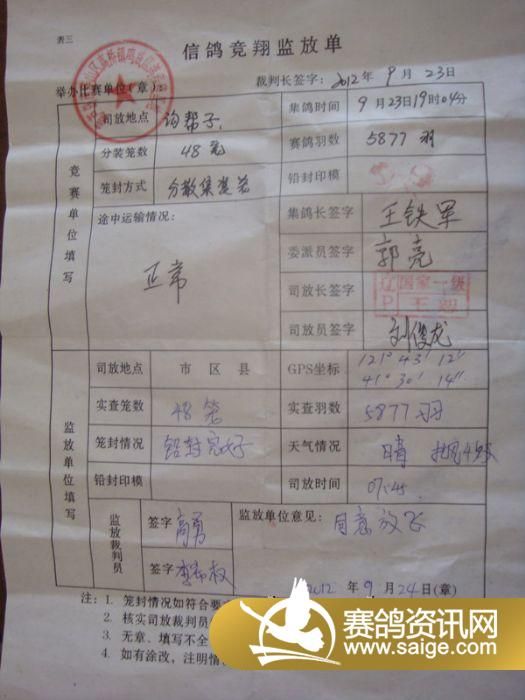 表三
信鸽竞翔监放单
举办比赛单位(章) 裁判长签字: 2012年 9月 23日
竞赛单位填写
司放地点 沟帮子 集鸽时间 9月23日19时04分
分装笼数 48笼 赛鸽羽数 5877 羽
笼封方式 分散集鸽 铅封印模
途中运输情况: 正常
集鸽长签字 王铁军
委派员签字 郭亮
司放长签字 辽国家一级
司放员签字 刘俊龙
监放单位填写
司放地点 市 区 县 GPS坐标 121° 43′ 12″
41° 30′ 14″
实查笼数 48笼 实查羽数 5877羽
笼封情况 铅封完好 天气情况 晴
铅封印模 司放时间 07:45
监放裁判员 签字 高勇 监放单位意见: 同意放飞
签字
2012 年 9 月 24日(章)
注: 1. 笼封情况如符合要
2. 核实司放裁判员
3. 无章、填写不全
4. 如有涂改, 注明情
赛鸽资讯网
www.saige.com